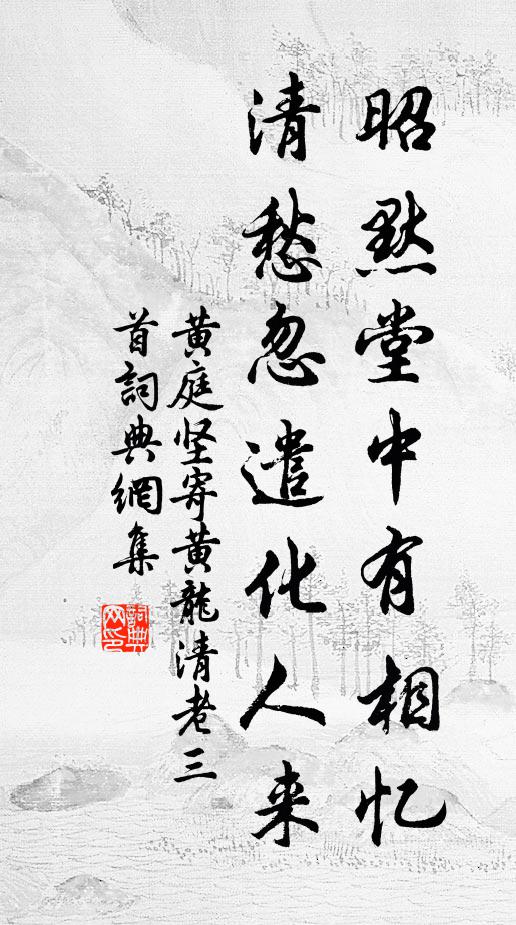 昭默堂中有相忆
清愁忽遣化人来
黄庭坚寄黄龍清老三
首詞典網集
詞典网印